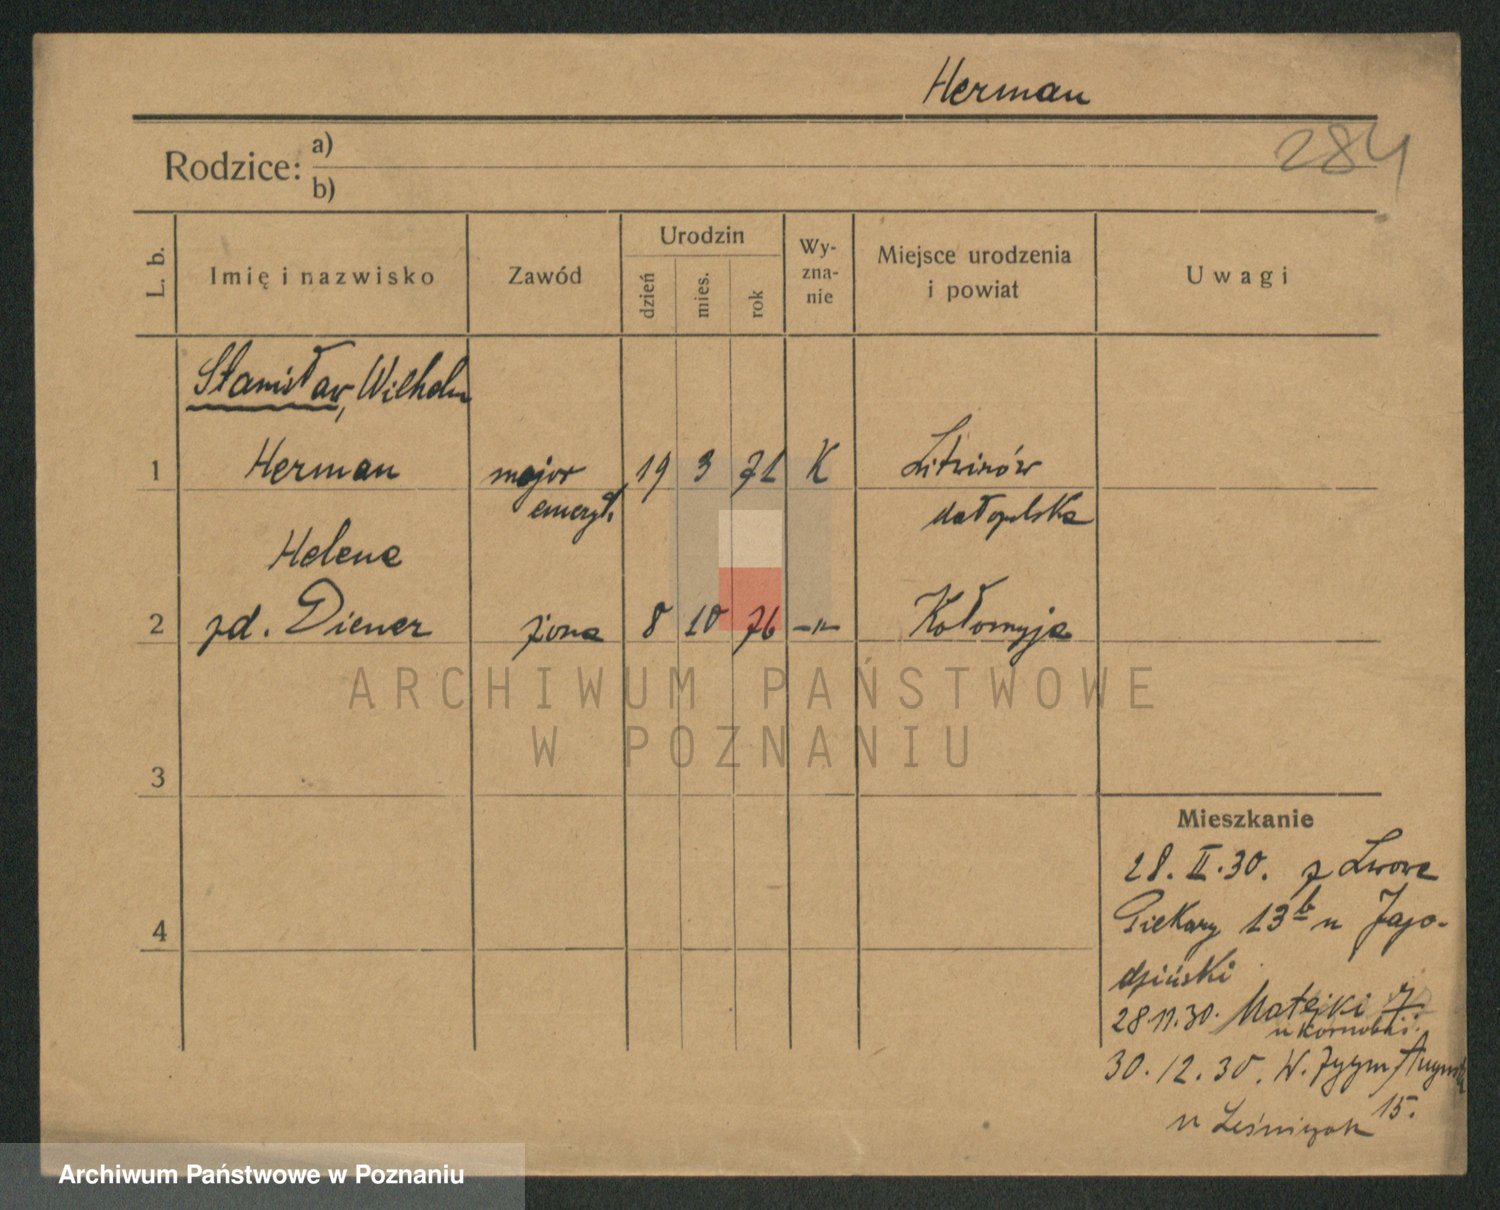 Herman
284
Rodzice: a)
b)
L. b.
Imię i nazwisko
Zawód
Urodzin
dzień
mies.
rok
Wy-
zna-
nie
Miejsce urodzenia
i powiat
Uwagi
Stanisław, Wilhelm
1 Herman major 19 3 71 K Litwinów
emeryt. małopolska
Helena
2 zd. Diener żona 8 10 76 -"- Kołomyja
ARCHIWUM PAŃSTWOWE
W POZNANIU
3
Mieszkanie
28. II. 30. z Lwowa
4
Piekary 13 b u Jago-
dziński
28.11.30. Matejki
30.12.30. W. Zygm August
15.
u Leśniczak
Archiwum Państwowe w Poznaniu